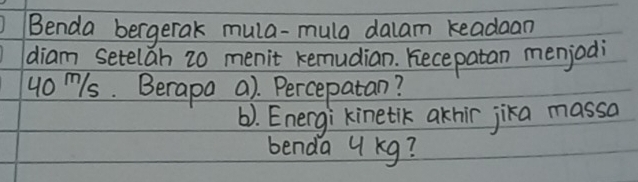 Benda bergerak mula-mula dalam keadaan
diam setelah 20 menit kemudian. Kecepatan menjadi
40 m/s. Berapa a). Percepatan?
b). Energi kinetik akhir jika massa
benda 4 kg?